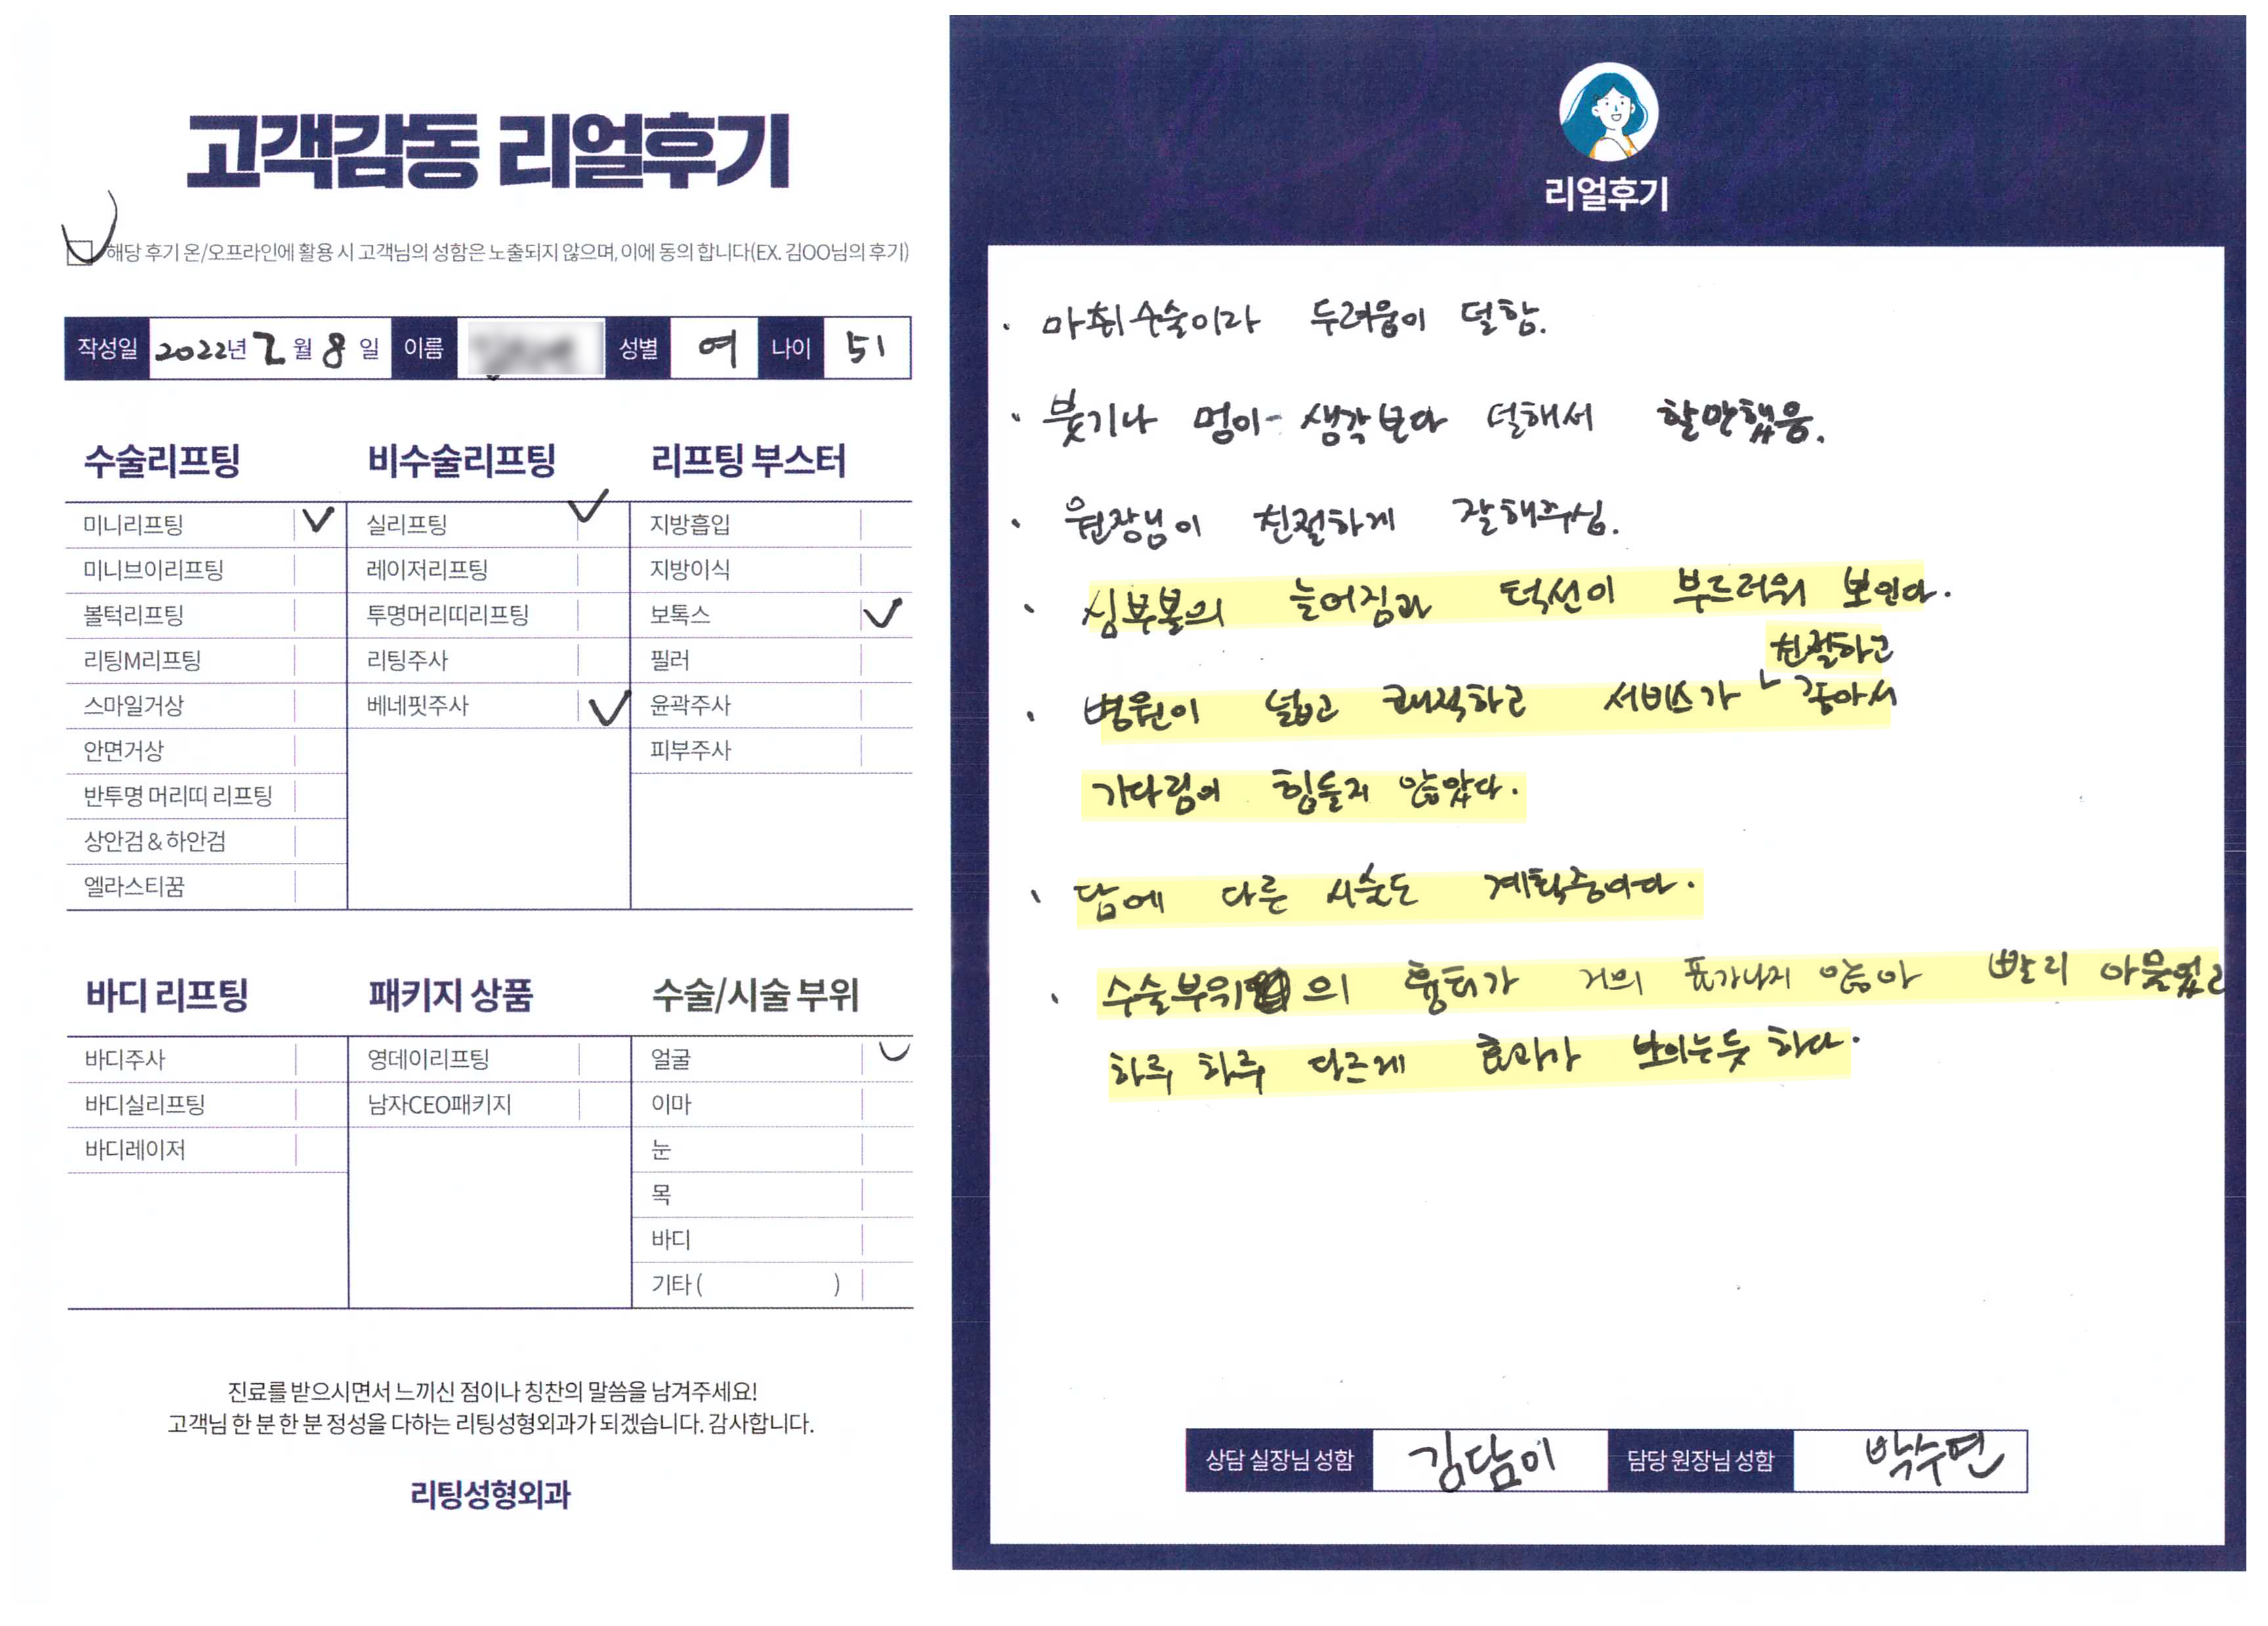 고객감동 리얼후기
해당 후기 온/오프라인에 활용 시 고객님의 성함은 노출되지 않으며, 이에 동의 합니다(EX. 김OO님의 후기)
작성일 2022년 2월 8일 이름 성별 여 나이 51
수술리프팅 비수술리프팅 리프팅 부스터
미니리프팅 실리프팅 지방흡입
미니브이리프팅 레이저리프팅 지방이식
볼턱리프팅 투명머리띠리프팅 보톡스
리팅M리프팅 리팅주사 필러
스마일거상 베네핏주사 윤곽주사
안면거상 피부주사
반투명 머리띠 리프팅
상안검 & 하안검
엘라스티꿈
바디 리프팅 패키지 상품 수술/시술 부위
바디주사 영데이리프팅 얼굴
바디실리프팅 남자CEO패키지 이마
바디레이저 눈
목
바디
기타 ( )
진료를 받으시면서 느끼신 점이나 칭찬의 말씀을 남겨주세요!
고객님 한 분 한 분 정성을 다하는 리팅성형외과가 되겠습니다. 감사합니다.
리팅성형외과
리얼후기
· 마취수술이라 두려움이 덜함.
· 붓기나 멍이 생각보다 덜해서 할만했음.
· 원장님이 친절하게 잘해주심.
· 심부볼의 늘어짐과 턱선이 부드러워 보인다.
친절하고
· 병원이 넓고 쾌적하고 서비스가 좋아서
기다림이 힘들지 않았다.
· 담에 다른 시술도 계획중이다.
· 수술부위의 흉터가 거의 표가나지 않아 빨리 아물었고
하루 하루 다르게 효과가 보이는듯 하다.
상담 실장님 성함 김담이 담당 원장님 성함 박수연